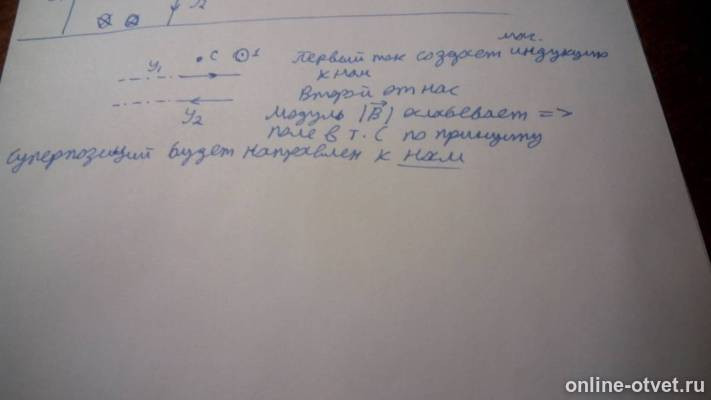 маг.
У1 • С ⊙ 1 Первый ток создает индукцию
к нам
Второй от нас
У2 Модуль |B⃗| ослабевает =>
поле в т. С по принципу
суперпозиций будет направлен к нам
online-otvet.ru